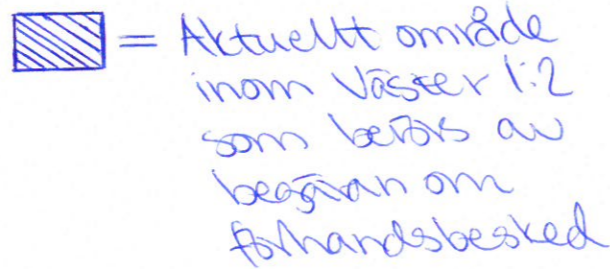 = Aktuellt område
inom Väster 1:2
som berörs av
begäran om
förhandsbesked